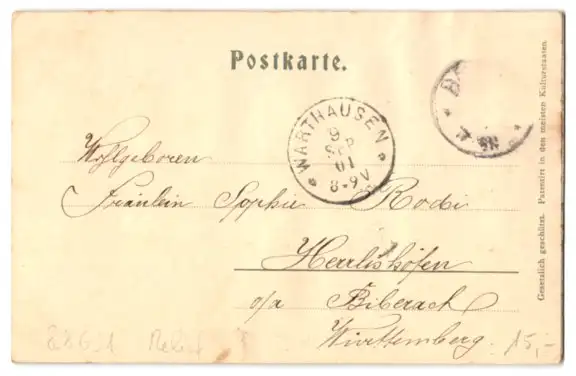 Postkarte.
WARTHAUSEN
9
SEP
01
8-9 V
Wohlgeboren
Fräulein Sophie Rodi
Herrlishöfen
o/a Biberach
Württemberg.
15,-
Gesetzlich geschützt. Patentirt in den meisten Kulturstaaten.